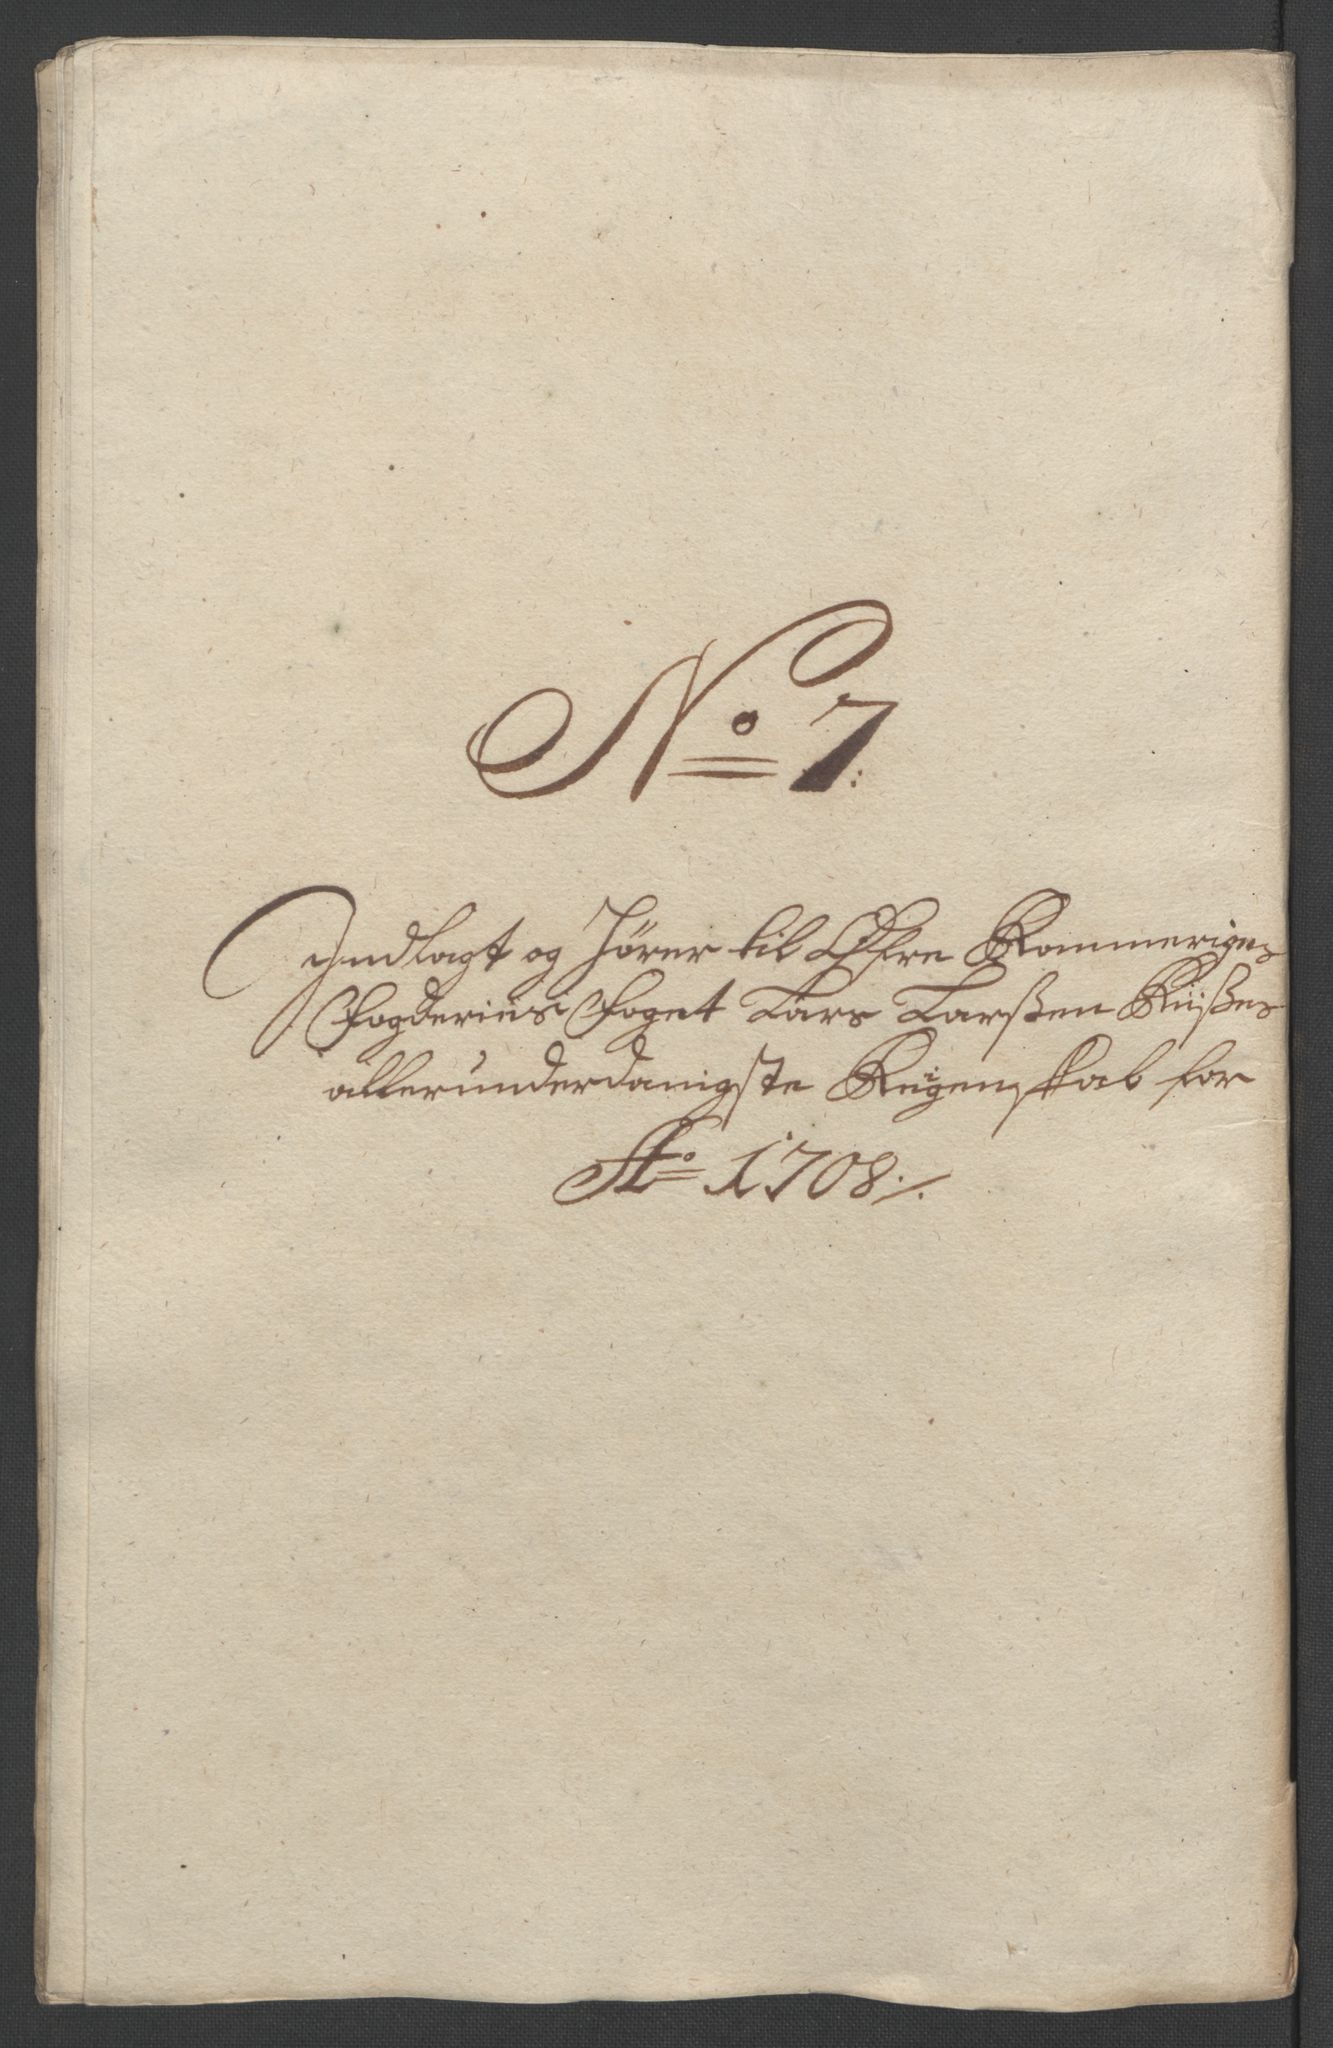 No 7.
Indlagt og hører til Øfre Rommeriges
Fogderies Foget Lars Larßen Riißes
allerunderdanigste Regenskab for
Ao 1708./.